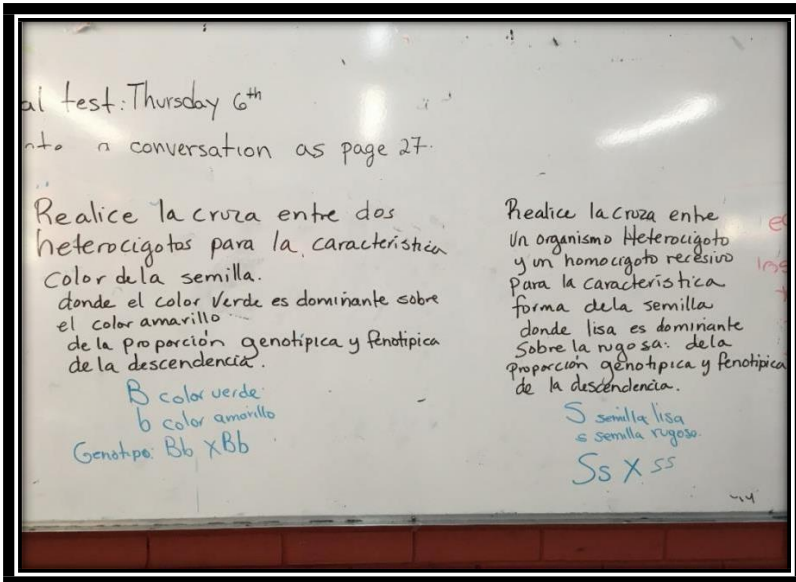 al test: Thursday 6th
nto a conversation as page 27.
Realice la cruza entre dos
heterocigotos para la caracteristica
Color de la semilla.
donde el color Verde es dominante sobre
el color amarillo
de la proporción genotípica y fenotipica
de la descendencia.
B color verde
b color amarillo
Genotipo: Bb X Bb
Realice la cruza entre
Un organismo Heterocigoto
y un homocigoto recesivo
para la caracteristica
forma de la semilla
donde lisa es dominante
Sobre la rugosa. de la
proporción genotipica y fenotipica
de la descendencia.
S semilla lisa
s semilla rugosa.
Ss X ss